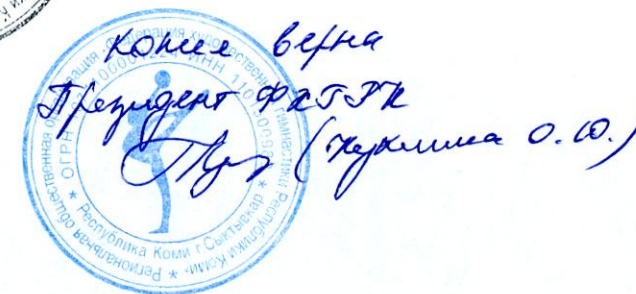 Копия верна
Президент ФХГРК
О.Ю.)
Региональная общественная организация «Федерация художественной гимнастики Республики Коми»
ОГРН ИНН
Республика Коми г. Сыктывкар